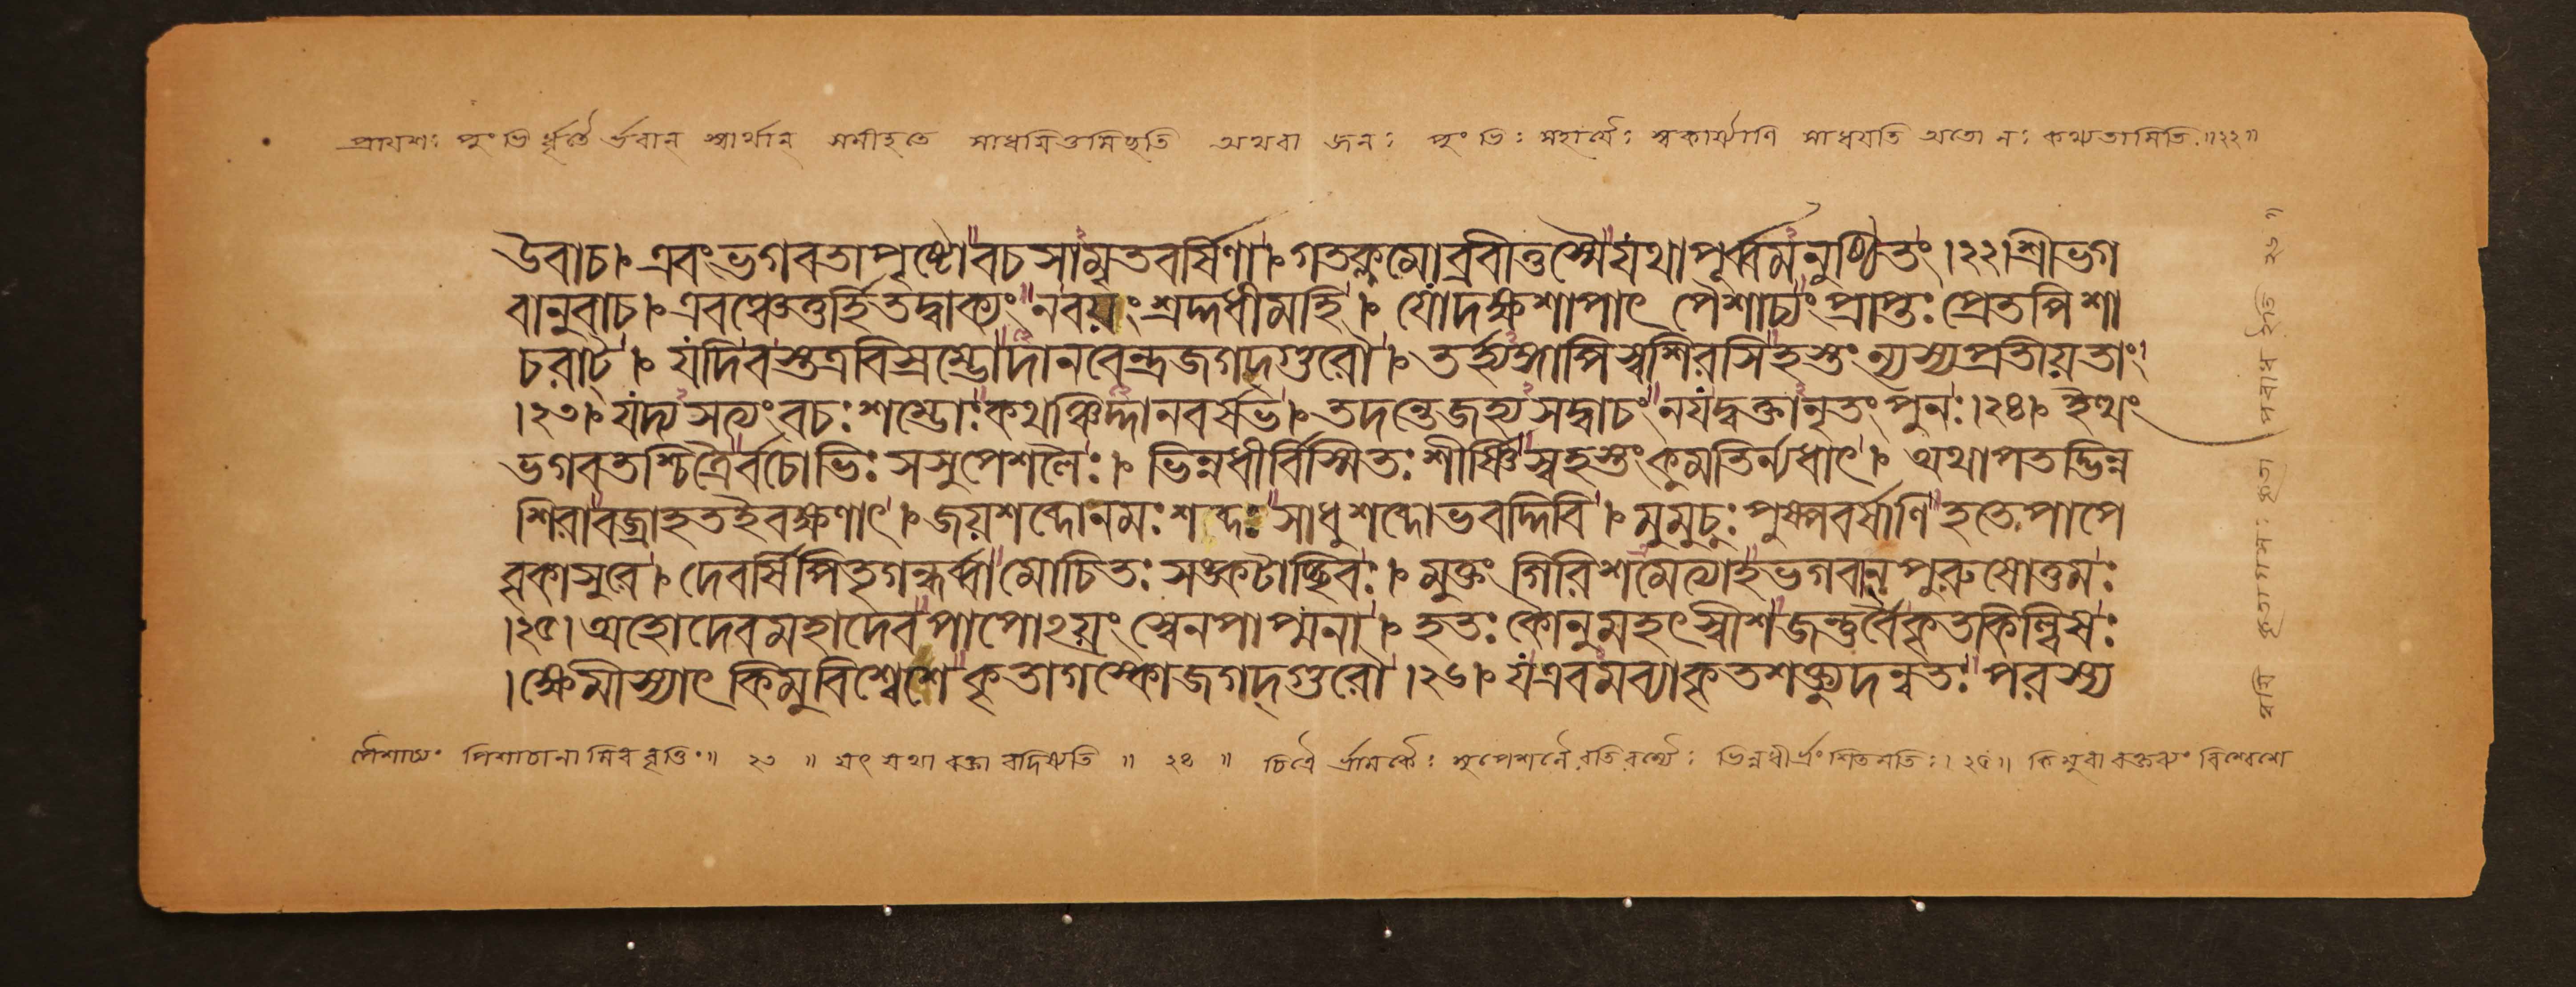 প্রাযশঃ পুংভি র্ধৃতৈ র্ভবান্ স্বার্থান্ সমীহতে সাধযিতুমিছতি অথবা জনঃ পুংভিঃ সহাযৈঃ স্বকার্য্যাণি সাধযতি অতো নঃ কথ্যতামিতি ॥২২॥
উবাচ। এবংভগবতাপৃষ্টোবচসামৃতবর্ষিণা। গতক্লমোব্রবীত্তস্মৈযথাপূর্ব্বমনুষ্ঠিতং।২২।শ্রীভগ
বানুবাচ। এবঞ্চেত্তর্হিতদ্বাক্যংনবয়ংশ্রদ্দধীমহি। যোদক্ষশাপাৎ পৈশাচ্যংপ্রাপ্তঃ প্রেতপিশা
চরাট্। যদিবস্তত্রবিস্রম্ভোদানবেন্দ্রজগদ্গুরৌ। তর্হ্যঙ্গাপিস্বশিরসিহস্তংন্যস্যপ্রতীয়তাং
।২৩। যদ্যসত্যংবচঃশম্ভোঃকথঞ্চিদ্দানবর্ষভ। তদন্তেজহ্যসদ্বাচংনযদ্বক্তানৃতংপুনঃ।২৪। ইত্থং
ভগবতশ্চিত্রৈর্বচোভিঃ সসুপেশলৈঃ। ভিন্নধীর্বিস্মিতঃ শীর্ষ্ণিস্বহস্তংকুমতির্ন্যধাৎ। অথাপতদ্ভিন্ন
শিরাবজ্রাহতইবক্ষণাৎ। জয়শব্দোনমঃশব্দঃসাধুশব্দোভবদ্দিবি। মুমুচুঃপুষ্পবর্ষাণিহতেপাপে
বৃকাসুরে। দেবর্ষিপিতৃগন্ধর্ব্বামোচিতঃ সঙ্কটাচ্ছিবঃ। মুক্তং গিরিশমেত্যাহভগবান্ পুরুষোত্তমঃ
।২৫।অহোদেবমহাদেবপাপোঽয়ংস্বেনপাপ্মনা। হতঃ কোনুমহৎস্বীশজন্তুর্বৈকৃতকিল্বিষঃ
।ক্ষেমীস্যাৎ কিমুবিশ্বেশেকৃতাগস্কোজগদ্গুরৌ।২৬। যএবমব্যাকৃতশক্ত্যুদন্বতঃ পরস্য
পৈশাচ্যং পিশাচানামিব বৃত্তিং॥ ২৩ ॥ যৎ যথা বক্তা বদিষ্যতি ॥ ২৪ ॥ চিত্রৈ র্ভ্রামকৈঃ সুপেশলৈ রতিরম্যৈঃ ভিন্নধীর্ভ্রংশিতমতিঃ। ২৫॥ কিমুবা বক্তব্যং বিশ্বেশে